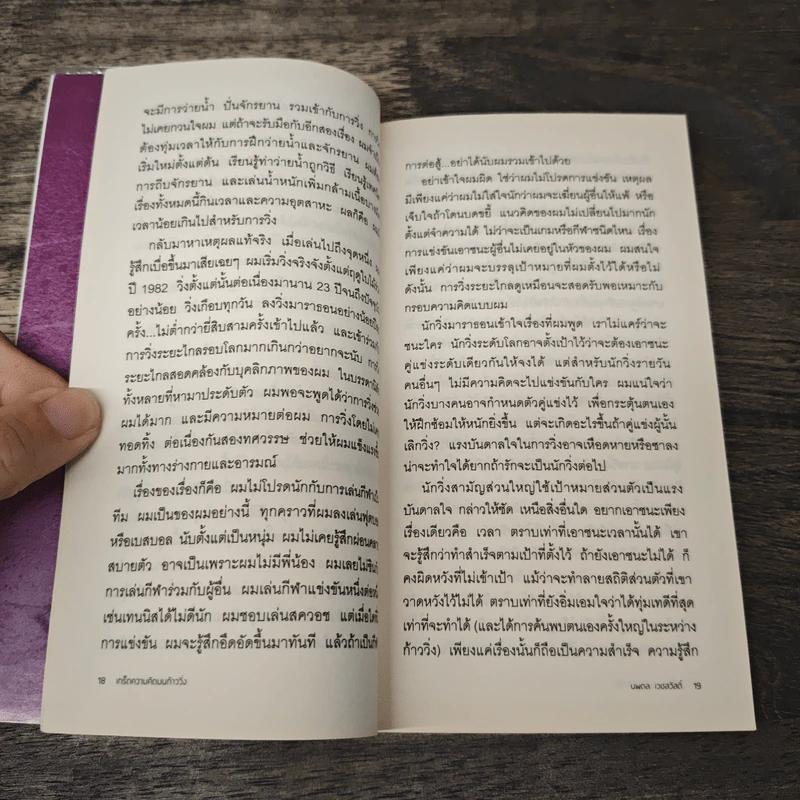 จะมีการว่ายน้ำ ปั่นจักรยาน รวมเข้ากับการวิ่ง
ไม่เคยกวนใจผม แต่ถ้าจะรับมือกับอีกสองเรื่อง
ต้องทุ่มเวลาให้กับการฝึกว่ายน้ำและจักรยาน
เริ่มใหม่ตั้งแต่ต้น เรียนรู้ท่าว่ายน้ำถูกวิธี เรียนรู้
การถีบจักรยาน และเล่นน้ำหนักเพิ่มกล้ามเนื้อ
เรื่องทั้งหมดนี้กินเวลาและความอุตสาหะ ผลก็คือ
เวลาน้อยเกินไปสำหรับการวิ่ง
กลับมาหาเหตุผลแท้จริง เมื่อเล่นไปถึงจุดหนึ่ง
รู้สึกเบื่อขึ้นมาเสียเฉยๆ ผมเริ่มวิ่งจริงจังตั้งแต่ฤดูใบไม้
ปี 1982 วิ่งตั้งแต่นั้นต่อเนื่องมานาน 23 ปีจนถึง
อย่างน้อย วิ่งเกือบทุกวัน ลงวิ่งมาราธอนอย่างน้อย
ครั้ง...ไม่ต่ำกว่ายี่สิบสามครั้งเข้าไปแล้ว และเข้าร่วม
การวิ่งระยะไกลรอบโลกมากเกินกว่าอยากจะนับ
ระยะไกลสอดคล้องกับบุคลิกภาพของผม ในบรรดา
ทั้งหลายที่หามาประดับตัว ผมพอจะพูดได้ว่าการวิ่ง
ผมได้มาก และมีความหมายต่อผม การวิ่งโดยไม่
ทอดทิ้ง ต่อเนื่องกันสองทศวรรษ ช่วยให้ผมแข็งแรง
มากทั้งทางร่างกายและอารมณ์
เรื่องของเรื่องก็คือ ผมไม่โปรดนักกับการเล่นกีฬา
ทีม ผมเป็นของผมอย่างนี้ ทุกคราวที่ผมลงเล่นฟุตบอล
หรือเบสบอล นับตั้งแต่เป็นหนุ่ม ผมไม่เคยรู้สึกผ่อนคลาย
สบายตัว อาจเป็นเพราะผมไม่มีพี่น้อง ผมเลยไม่
การเล่นกีฬาร่วมกับผู้อื่น ผมเล่นกีฬาแข่งขันหนึ่งต่อหนึ่ง
เช่นเทนนิสได้ไม่ดีนัก ผมชอบเล่นสควอช แต่เมื่อใด
การแข่งขัน ผมจะรู้สึกอึดอัดขึ้นมาทันที แล้วถ้าเป็น
18 เกร็ดความคิดบนก้าววิ่ง
การต่อสู้...อย่าได้นับผมรวมเข้าไปด้วย
อย่าเข้าใจผมผิด ใช่ว่าผมไม่โปรดการแข่งขัน เหตุผล
มีเพียงแค่ว่าผมไม่ใส่ใจนักว่าผมจะเฆี่ยนผู้อื่นให้แพ้ หรือ
เจ็บใจถ้าโดนบดขยี้ แนวคิดของผมไม่เปลี่ยนไปมากนัก
ตั้งแต่จำความได้ ไม่ว่าจะเป็นเกมหรือกีฬาชนิดไหน เรื่อง
การแข่งขันเอาชนะผู้อื่นไม่เคยอยู่ในหัวของผม ผมสนใจ
เพียงแค่ว่าผมจะบรรลุเป้าหมายที่ผมตั้งไว้ได้หรือไม่
ดังนั้น การวิ่งระยะไกลดูเหมือนจะสอดรับพอเหมาะกับ
กรอบความคิดแบบผม
นักวิ่งมาราธอนเข้าใจเรื่องที่ผมพูด เราไม่แคร์ว่าจะ
ชนะใคร นักวิ่งระดับโลกอาจตั้งเป้าไว้ว่าจะต้องเอาชนะ
คู่แข่งระดับเดียวกันให้จงได้ แต่สำหรับนักวิ่งรายวัน
คนอื่นๆ ไม่มีความคิดจะไปแข่งขันกับใคร ผมแน่ใจว่า
นักวิ่งบางคนอาจกำหนดตัวคู่แข่งไว้ เพื่อกระตุ้นตนเอง
ให้ฝึกซ้อมให้หนักยิ่งขึ้น แต่จะเกิดอะไรขึ้นถ้าคู่แข่งผู้นั้น
เลิกวิ่ง? แรงบันดาลใจในการวิ่งอาจเหือดหายหรือซาลง
น่าจะทำใจได้ยากถ้ารักจะเป็นนักวิ่งต่อไป
นักวิ่งสามัญส่วนใหญ่ใช้เป้าหมายส่วนตัวเป็นแรง
บันดาลใจ กล่าวให้ชัด เหนือสิ่งอื่นใด อยากเอาชนะเพียง
เรื่องเดียวคือ เวลา ตราบเท่าที่เอาชนะเวลานั้นได้ เขา
จะรู้สึกว่าทำสำเร็จตามเป้าที่ตั้งไว้ ถ้ายังเอาชนะไม่ได้ ก็
คงผิดหวังที่ไม่เข้าเป้า แม้ว่าจะทำลายสถิติส่วนตัวที่เขา
วาดหวังไว้ไม่ได้ ตราบเท่าที่ยังอิ่มเอมใจว่าได้ทุ่มเทดีที่สุด
เท่าที่จะทำได้ (และได้การค้นพบตนเองครั้งใหญ่ในระหว่าง
ก้าววิ่ง) เพียงแค่เรื่องนั้นก็ถือเป็นความสำเร็จ ความรู้สึก
นพดล เวชสวัสดิ์ 19